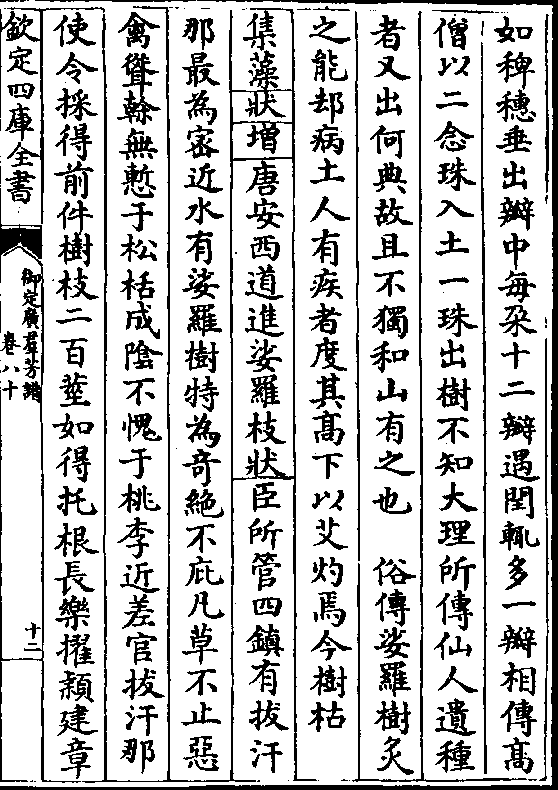 如稗穗垂出瓣中每朶十二瓣遇閏輒多一瓣相傳髙
僧以二念珠入土一珠出樹不知大理所傳仙人遺種
者又出何典故且不獨和山有之也　俗傳娑羅樹炙
之能却病土人有疾者度其髙下以艾灼焉今樹枯
集藻狀增唐安西道進娑羅枝狀臣所管四鎮有拔汗
那最為密近水有娑羅樹特為竒絶不庇凡草不止惡
禽聳榦無慙于松栝成陰不愧于桃李近差官拔汗那
使令採得前件樹枝二百莖如得托根長樂擢頴建章
欽定四庫全書
御定廣羣芳譜
卷八十
十二